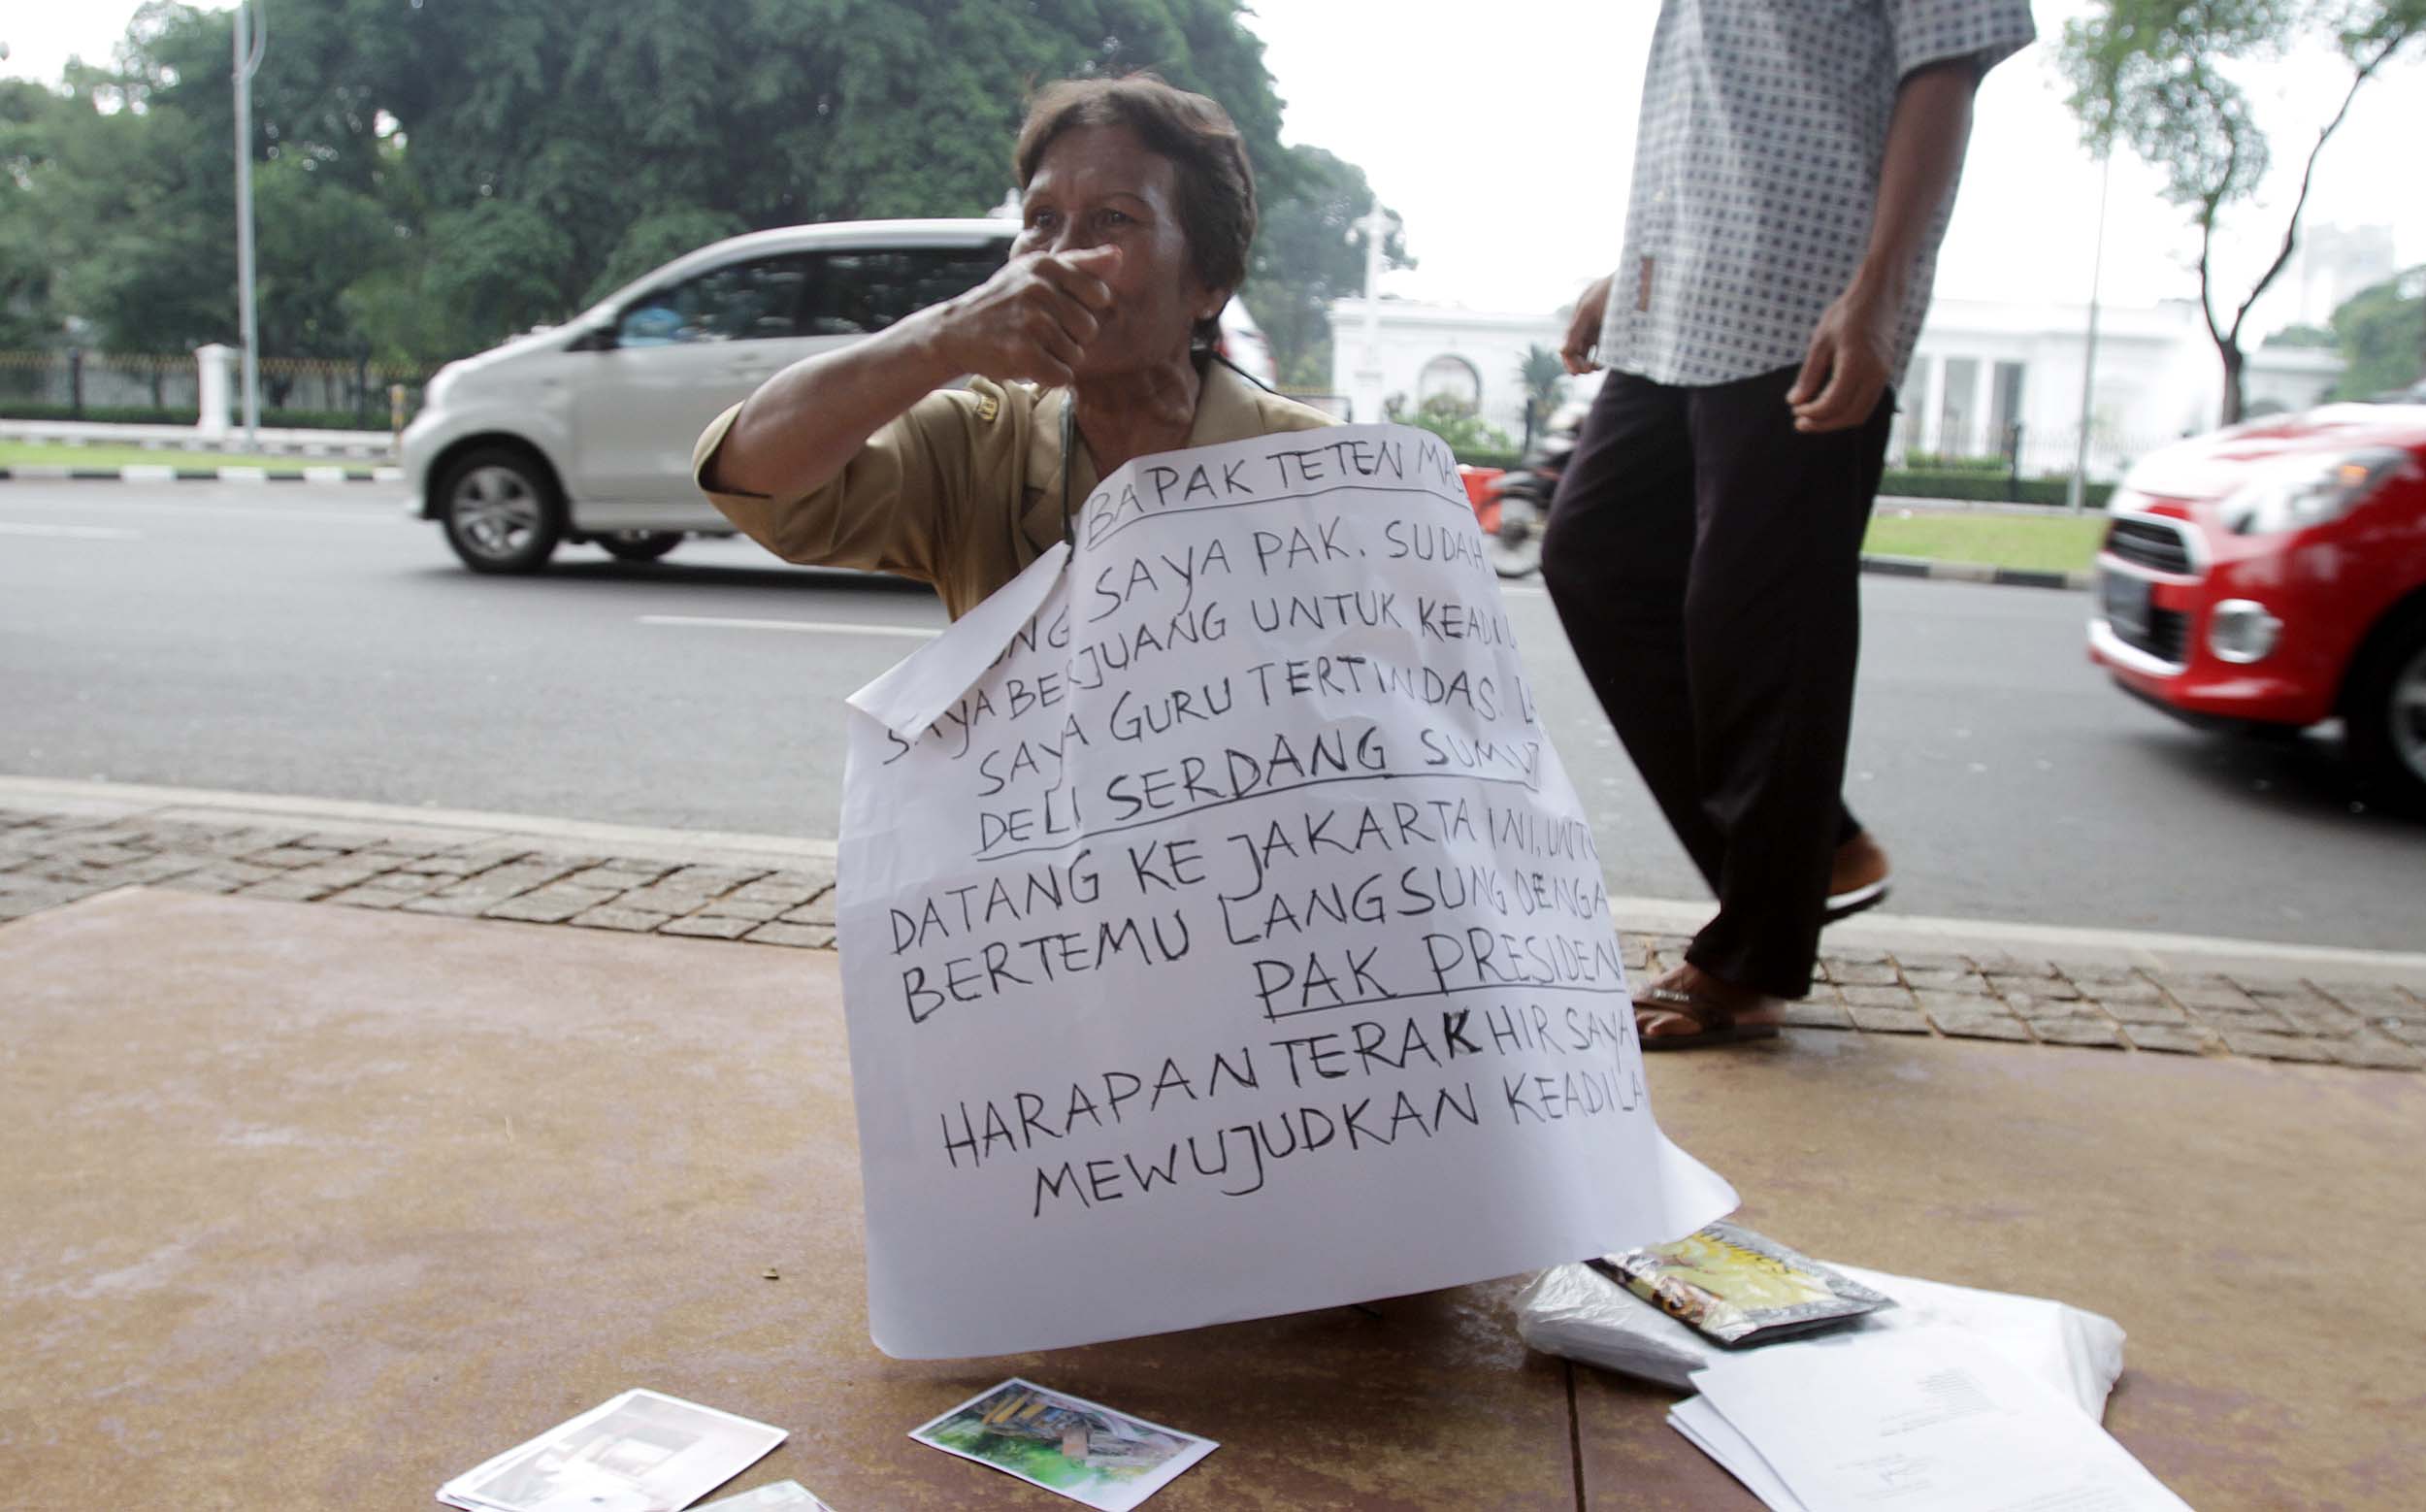 BAPAK TETEN
SAYA PAK. SUDAH
SAYA BERJUANG UNTUK
SAYA GURU TERTINDAS.
DELI SERDANG SUMUT
DATANG KE JAKARTA INI,
BERTEMU LANGSUNG
PAK PRESIDEN
HARAPAN TERAKHIR SAYA
MEWUJUDKAN